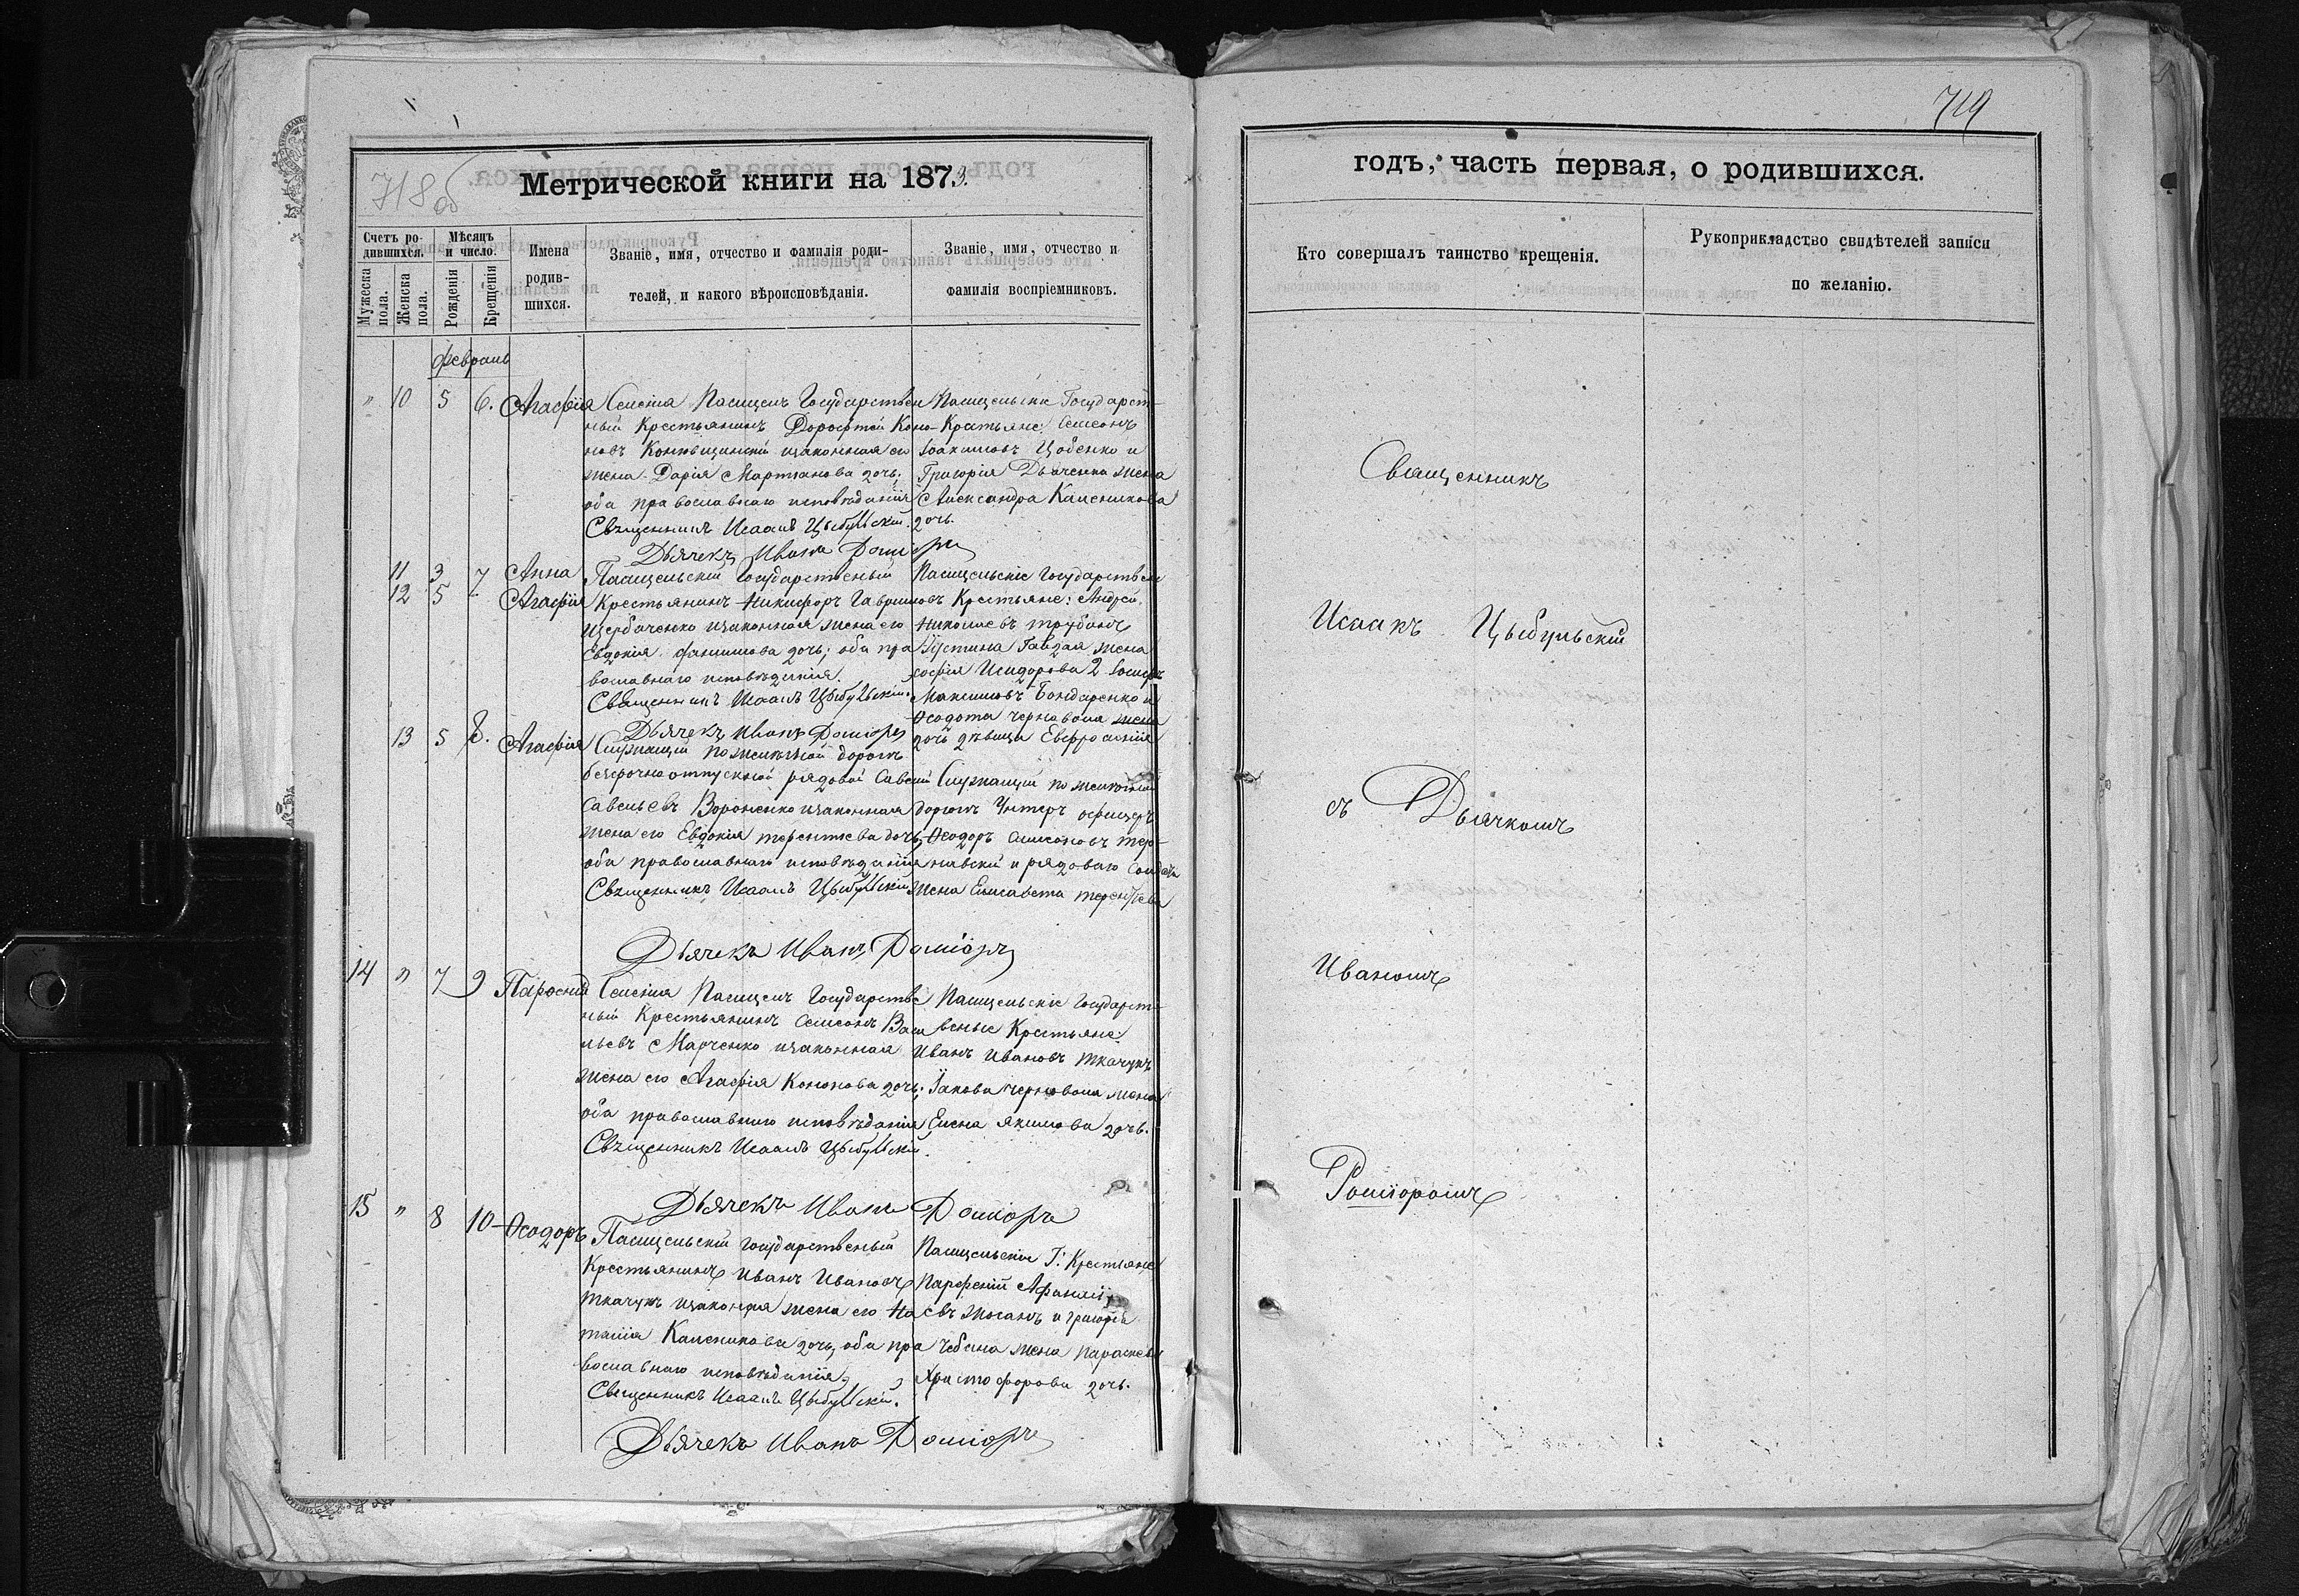 718 об
Метрической книги на 1873.
Счетъ ро-
дившихся.
Мѣсяцъ
и число.
Мужеска пола.
Женска пола.
Рожденія
Крещенія
Имена
родив-
шихся.
Званіе, имя, отчество и фамилія роди-
телей, и какого вѣроисповѣданія.
Званіе, имя, отчество и
фамилія воспріемниковъ.
февраль
" 10 5 6. Агафія
Селенія Пасицелъ Государствен
ный Крестьянинъ Дорофтей Коно-
новъ изаконная его
жена Дарія Мартіанова дочь;
оба православнаго исповѣданія
Священникъ Исаакъ Цыбульскій.
Дьячекъ Иванъ
Пасицельскіе Государст-
Крестьяне: Семеонъ
Іоакимовъ Цобенко и
Григорія Дьяченка жена
Александра Каленикова
дочь.
11 3 7 Анна
12 5 - Агафія
Пасицельскій Государственый
Крестьянинъ Никифоръ Гавриловъ
Щербаченко изаконная жена его
Евдокія дочь; оба пра
вославнаго исповѣданія.
Священникъ Исаакъ Цыбульскій.
Дьячекъ Иванъ
Пасицельскіе Государствен
Крестьяне: Андрей
Николаевъ
Іустина жена
софія Исидорова 2 Іосифъ
Максимовъ Бондаренко и
Ѳеодота Черновола жена
дочь дѣвица Евфросинія
13 5 8. Агафія
Служащій по желѣзной дорогѣ
безсрочноотпускной рядовой
Савельевъ Вороненко изаконная
жена его Евдокія терентіева дочь,
оба православнаго исповѣданія
Священникъ Исаакъ Цыбульскій
Дьячекъ Иванъ
Служащій по желѣзной
дорогѣ Унтеръ офицеръ
Ѳеодоръ Симеоновъ тер-
навскій и рядоваго
жена Елисавета терентіева
14 " 7 9
Селенія Пасицелъ Государстве
ный Крестьянинъ Семеонъ Васи
льевъ Марченко изаконная
жена его Агафія Кононова дочь;
оба православнаго исповѣданія
Священникъ Исаакъ Цыбульскій.
Дьячекъ Иванъ
Пасицельскіе Государст-
веные Крестьяне
Иванъ Ивановъ Ткачукъ
Іакова Черновола жена
Елена Якимова дочь.
15 " 8 10 Ѳеодоръ
Пасицельскій Государственый
Крестьянинъ Иванъ Ивановъ
Ткачукъ изаконая жена его На
талія Каленикова дочь, оба пра
вославнаго исповѣданія,
Священникъ Исаакъ Цыбульскій.
Дьячекъ Иванъ
Пасицельскіе Г. Крестьяне
Парфеній
и Григорія
Чебана жена Параскева
Христофорова дочь.
719
годъ, часть первая, о родившихся.
Кто совершалъ таинство крещенія.
Рукоприкладство свидѣтелей записи
по желанію.
Священникъ
Исаакъ Цыбульскій
съ Дьячкомъ
Иваномъ